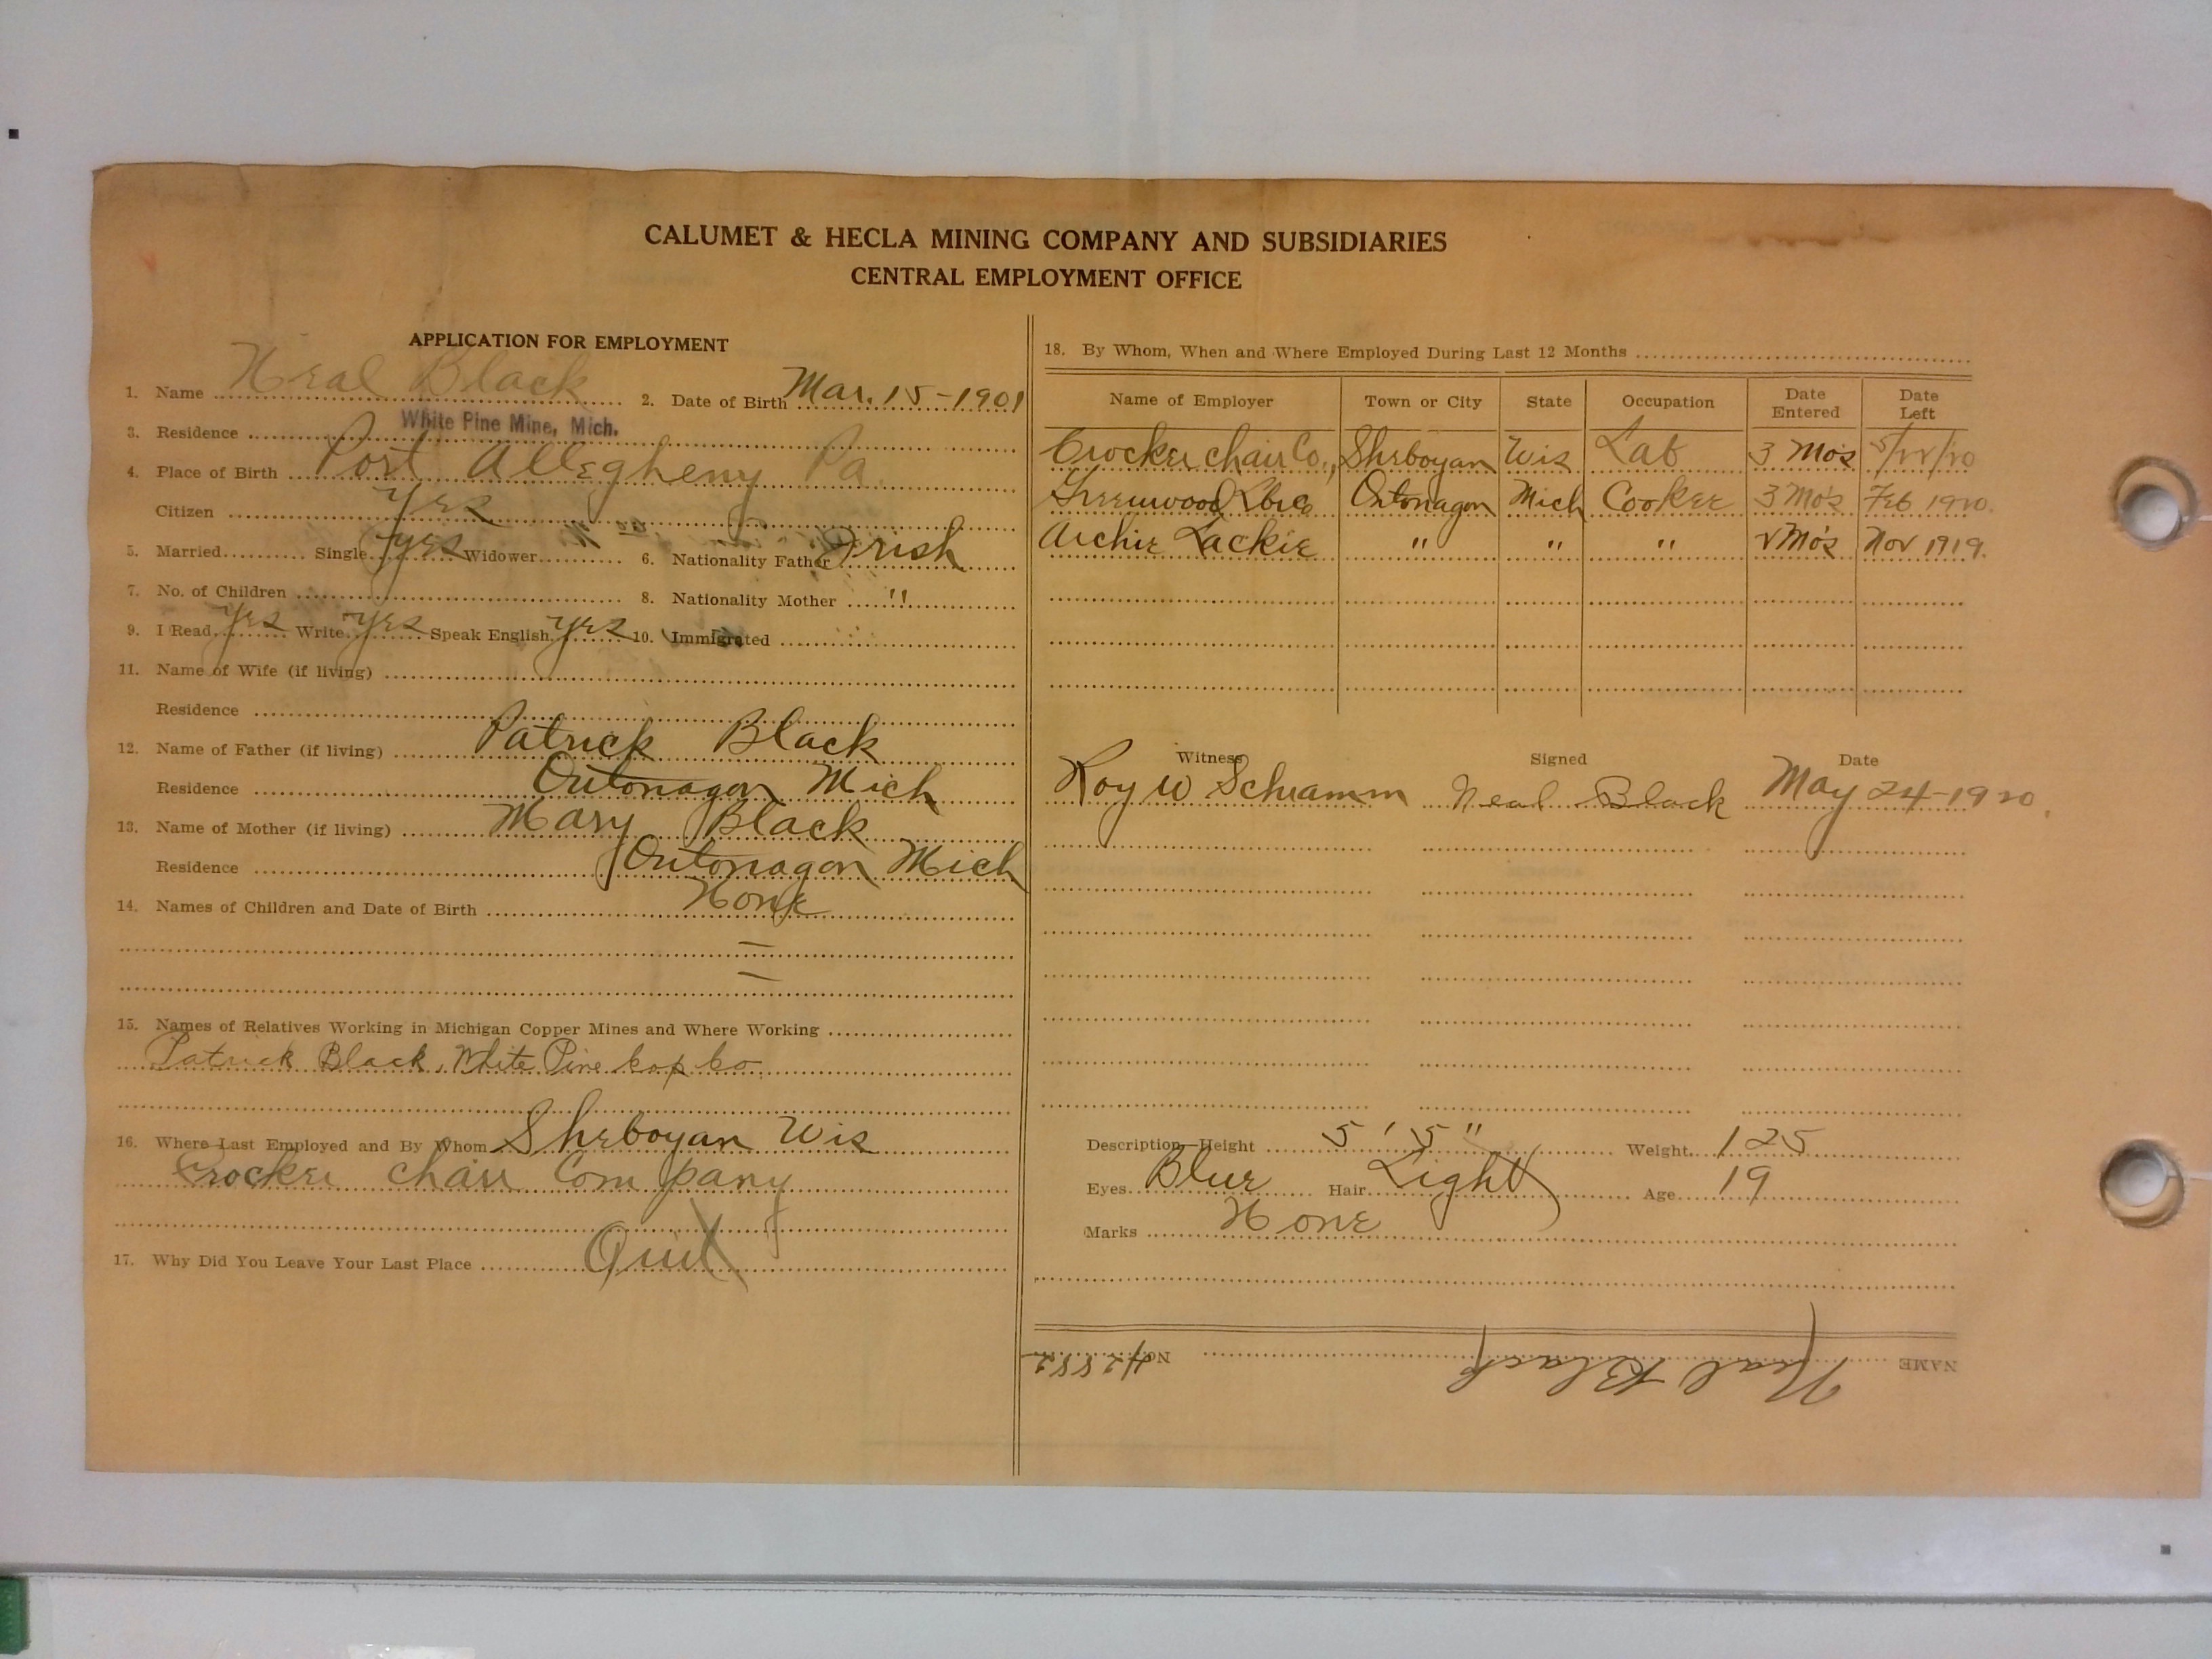 CALUMET & HECLA MINING COMPANY AND SUBSIDIARIES
CENTRAL EMPLOYMENT OFFICE
APPLICATION FOR EMPLOYMENT
1. Name Neal Black 2. Date of Birth Mar. 15-1901
3. Residence White Pine Mine, Mich.
4. Place of Birth Port Allegheny Pa.
Citizen Yes
5. Married Single Yes Widower 6. Nationality Father Irish
7. No. of Children 8. Nationality Mother "
9. I Read Yes Write Yes Speak English Yes 10. Immigrated
11. Name of Wife (if living)
Residence
12. Name of Father (if living) Patrick Black
Residence Ontonagon Mich
13. Name of Mother (if living) Mary Black
Residence Ontonagon Mich
14. Names of Children and Date of Birth None
15. Names of Relatives Working in Michigan Copper Mines and Where Working
Patrick Black, White Pine Cop Co.
16. Where Last Employed and By Whom Sheboyan Wis
Crocker Chair Company
17. Why Did You Leave Your Last Place Quit
18. By Whom, When and Where Employed During Last 12 Months
Name of Employer Town or City State Occupation Date Entered Date Left
Crocker Chair Co., Sheboyan Wis Lab 3 Mo's 5/22/20
Greenwood Ontonagon Mich Cooker 3 Mo's Feb 1920.
Archie Lackie " " " 2 Mo's Nov 1919.
Witness Signed Date
Roy W Schramm Neal Black May 24-1920.
Description—Height 5' 5" Weight 125
Eyes Blue Hair Light Age 19
Marks None
NAME Neal Black No. 42882